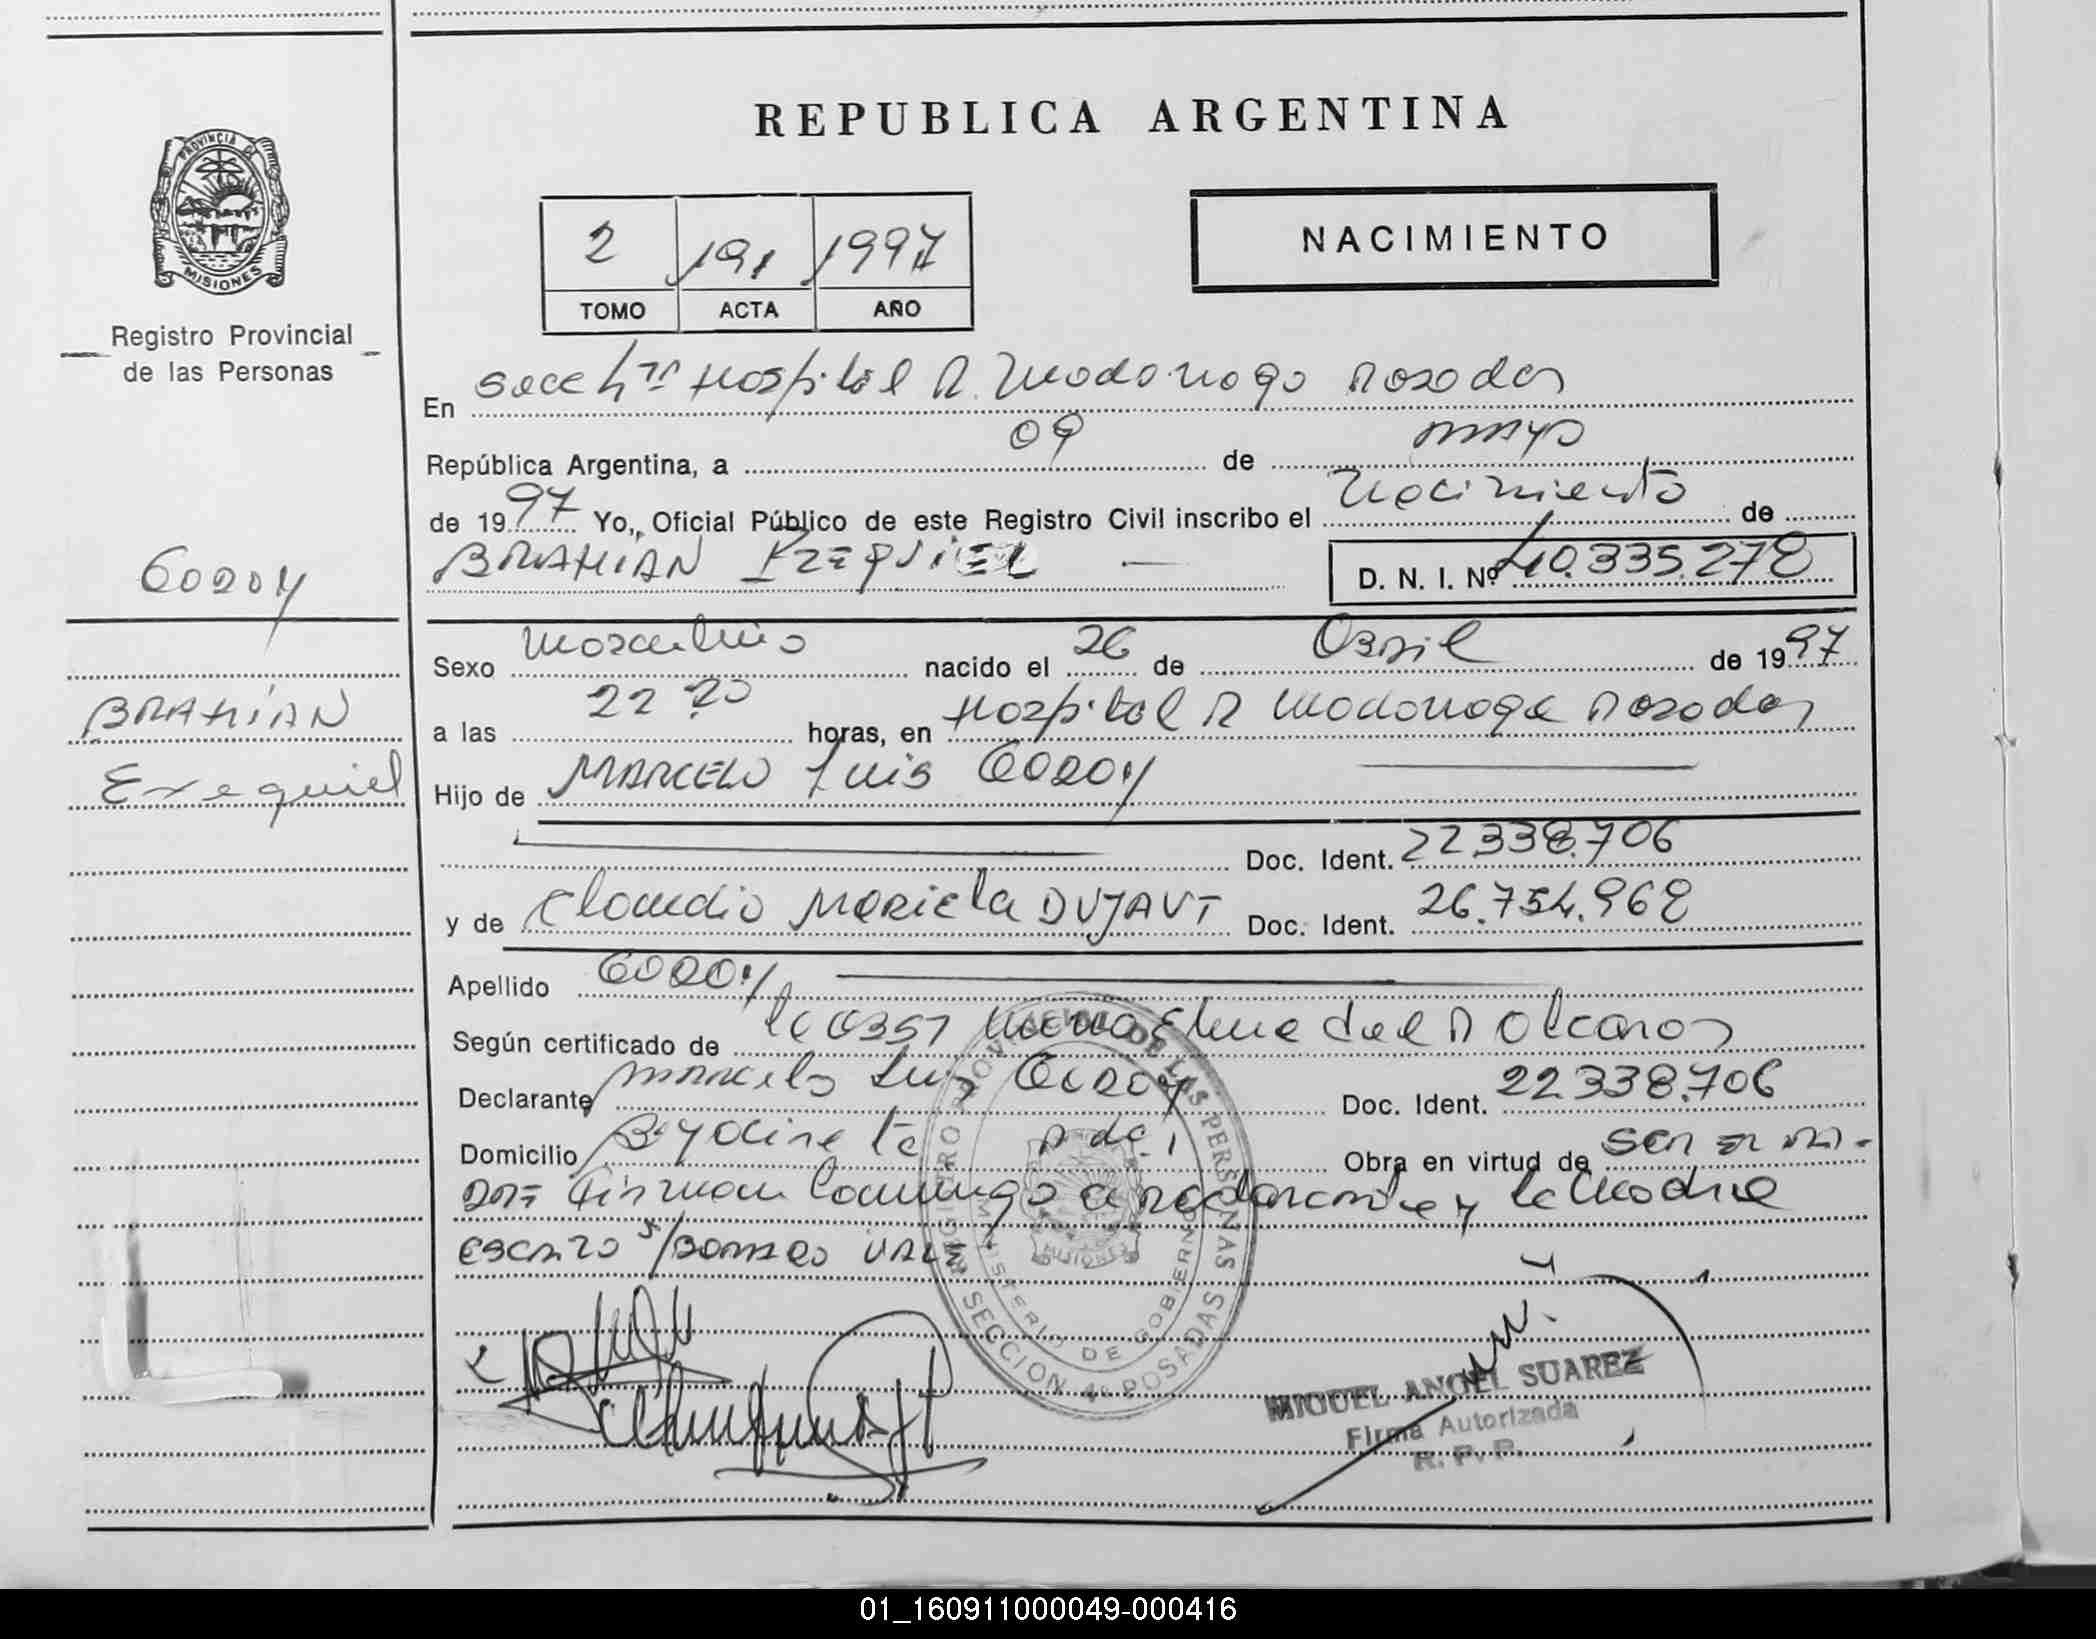 REPUBLICA ARGENTINA
PROVINCIA DE
MISIONES
Registro Provincial
de las Personas
2 191 1997
TOMO ACTA AÑO
NACIMIENTO
En Secc Hospital R. Madariaga Posadas
República Argentina, a 09 de mayo
de 1997 Yo, Oficial Público de este Registro Civil inscribo el Nacimiento de
BRAHIAN EZEQUIEL D. N. I. Nº 40.335.278
GODOY
BRAHIAN
Exequiel
Sexo Masculino nacido el 26 de Abril de 1997
a las 22 20 horas, en Hospital R Madariaga Posadas
Hijo de MARCELO Luis GODOY
Doc. Ident. 22.338.706
y de Claudia Mariela DUJAUT Doc. Ident. 26.754.968
Apellido GODOY
Según certificado de Maria Elena del
Declarante Marcelo Luis Godoy Doc. Ident. 22.338.706
Domicilio Obra en virtud de ser el pa-
dre Firman conmigo declarante y la Madre
escrito s/borrado VALE.
REGISTRO PROVINCIAL DE LAS PERSONAS
MINISTERIO DE GOBIERNO
MISIONES
SECCION 4ª POSADAS
MIGUEL ANGEL SUAREZ
Firma Autorizada
R. P. P.
01_160911000049-000416